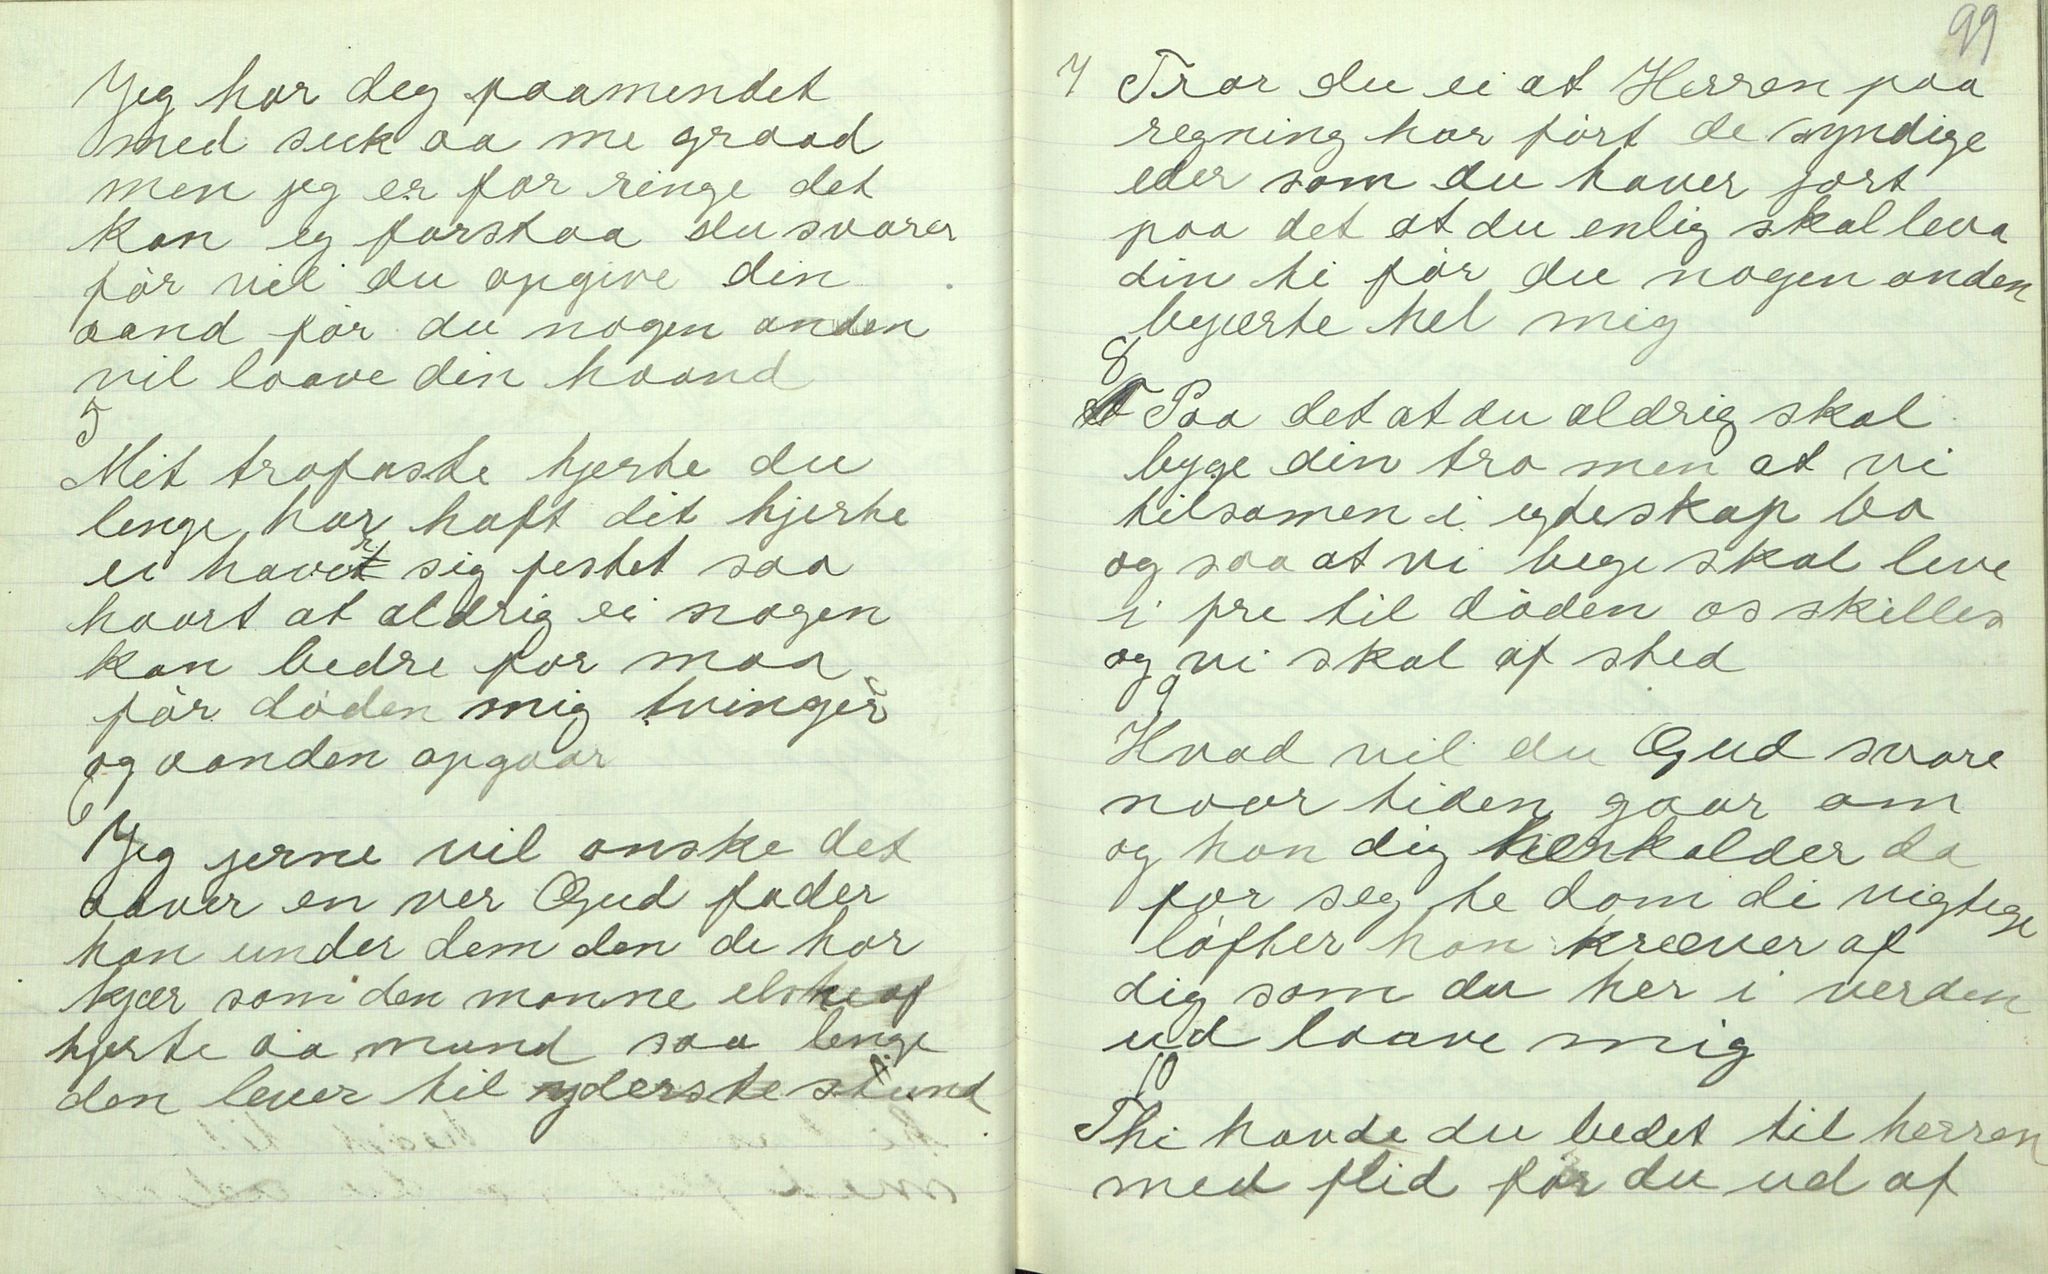 Jeg har deg paamendet
med suk aa me graad
men jeg er for ringe det
kan eg forstaa du svarer
før vil du opgive din
aand før du nogen anden
vil loave din haand
5
Mit trofaste hjerte du
lenge har haft dit hjerte
ei haver sig festet saa
haart at aldrig ei nogen
kan bedre for maa
før døden mig tvinger
og aanden opgaar
6
Jeg jerne vil onske det
aaver en ver Gud fader
han under dem den de har
kjær som den monne elske af
hjerte aa mund saa lenge
den lever til yderste stund
99
7 Tror du ei at Herren paa
regning har ført de syndige
eder som du haver jort
paa det at du enlig skal leva
din ti før du nogen anden
bejærte hel mig
8
Paa det at du aldrig skal
byge din tro men at vi
tilsamen i egteskap bo
og saa at vi bege skal leve
i fre til døden os skilles
og vi skal af sted
9
Hvad vil du Gud svare
naar tiden gaar om
og han dig kalder da
for seg te dom di vigtege
løfter han kræver af
dig som du her i verden
ud loave mig
10
Thi havde du bedet til herren
med flid før du ud af